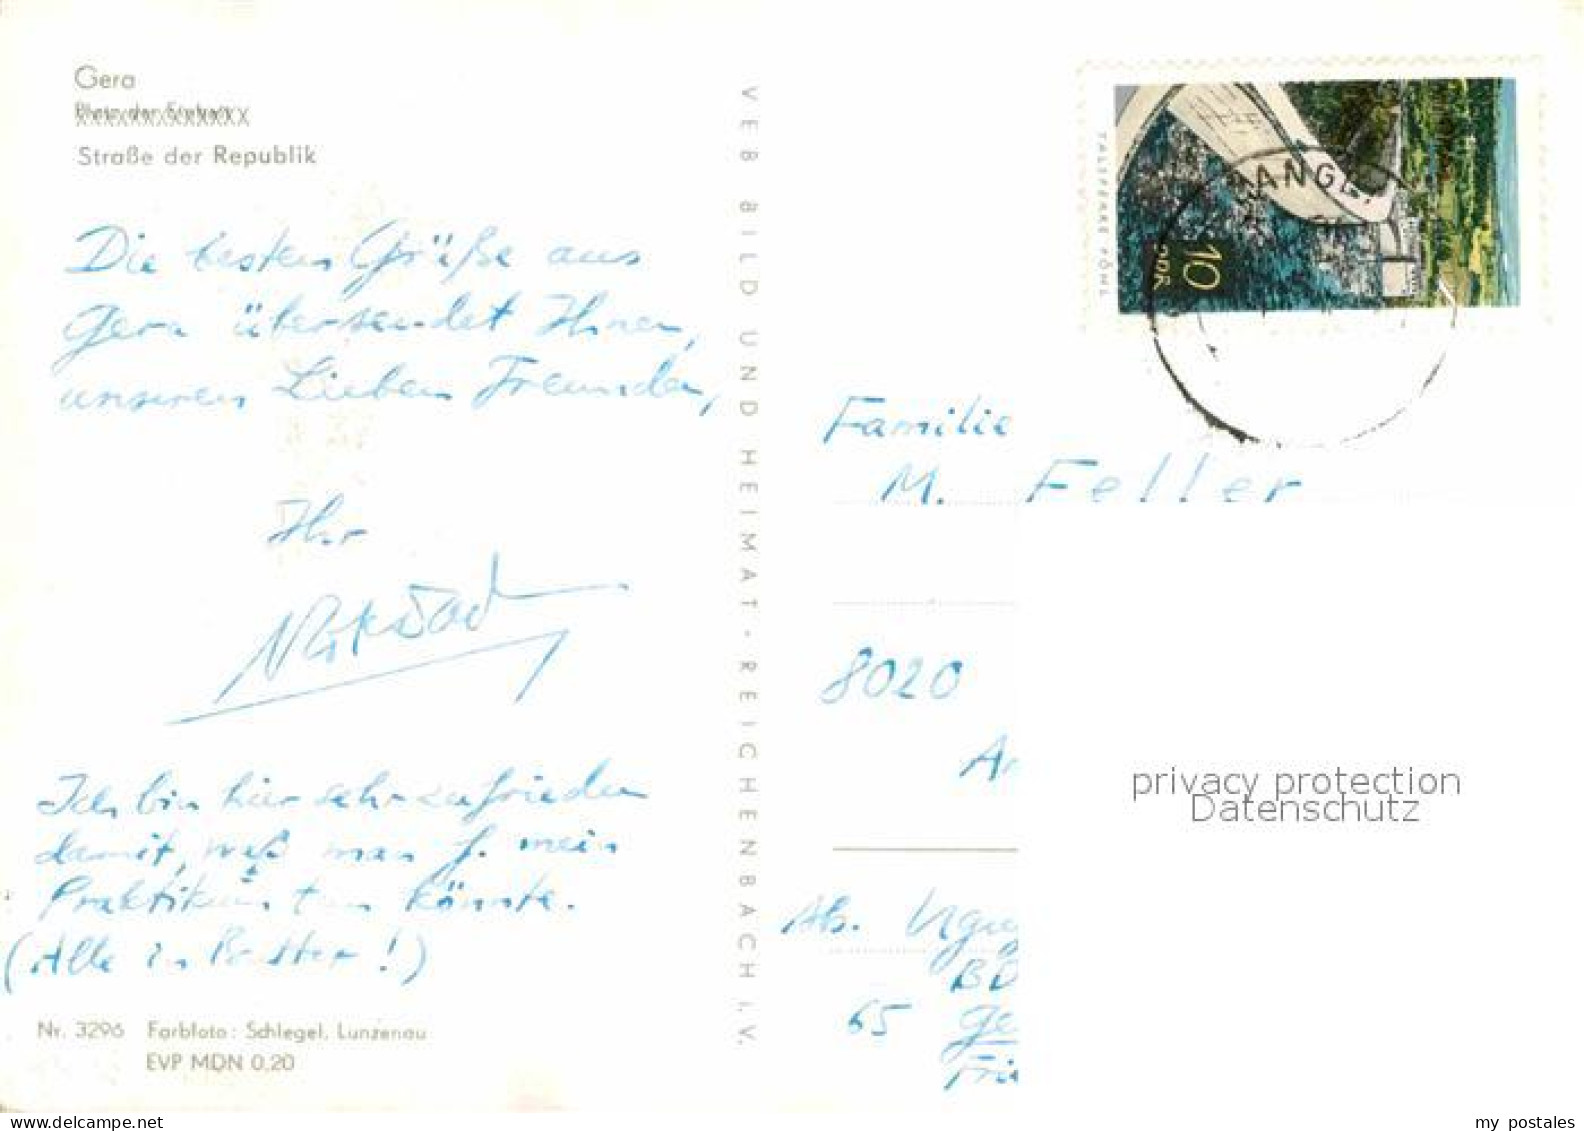 Gera
Platz der Einheit
XXXXXXXXXXXXXX
Straße der Republik
Die besten Grüße aus
Gera übersendet Ihnen,
unseren Lieben Freunden,
Ihr
Ich bin hier sehr zufrieden
damit, was man f. mein
Praktikum tun könnte.
(Alle in Butter!)
Nr. 3296 Farbfoto: Schlegel, Lunzenau
EVP MDN 0,20
VEB BILD UND HEIMAT · REICHENBACH i. V.
TALSPERRE PÖHL
10
DDR
ANGE
Familie
M. Feller
8020
Ab. Nguy
BD
65 Ge
Fri
privacy protection
Datenschutz
delcampe.net
my postales